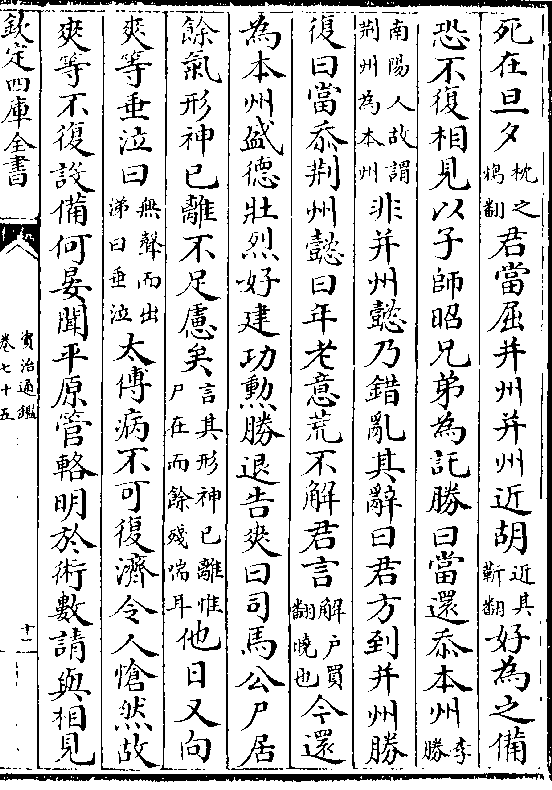 死在旦夕枕之鴆翻君當屈并州并州近胡近其靳翻好為之備
恐不復相見以子師昭兄弟為託勝曰當還忝本州李勝
南陽人故謂荆州為本州非并州懿乃錯亂其辭曰君方到并州勝
復曰當忝荆州懿曰年老意荒不解君言解户買翻曉也今還
為本州盛德壯烈好建功勲勝退告爽曰司馬公尸居
餘氣形神已離不足慮矣言其形神已離惟尸在而餘殘喘耳他日又向
爽等垂泣曰無聲而出涕曰垂泣太傅病不可復濟令人愴然故
爽等不復設備何晏聞平原管輅明於術數請與相見
欽定四庫全書
資治通鑑
卷七十五
十一